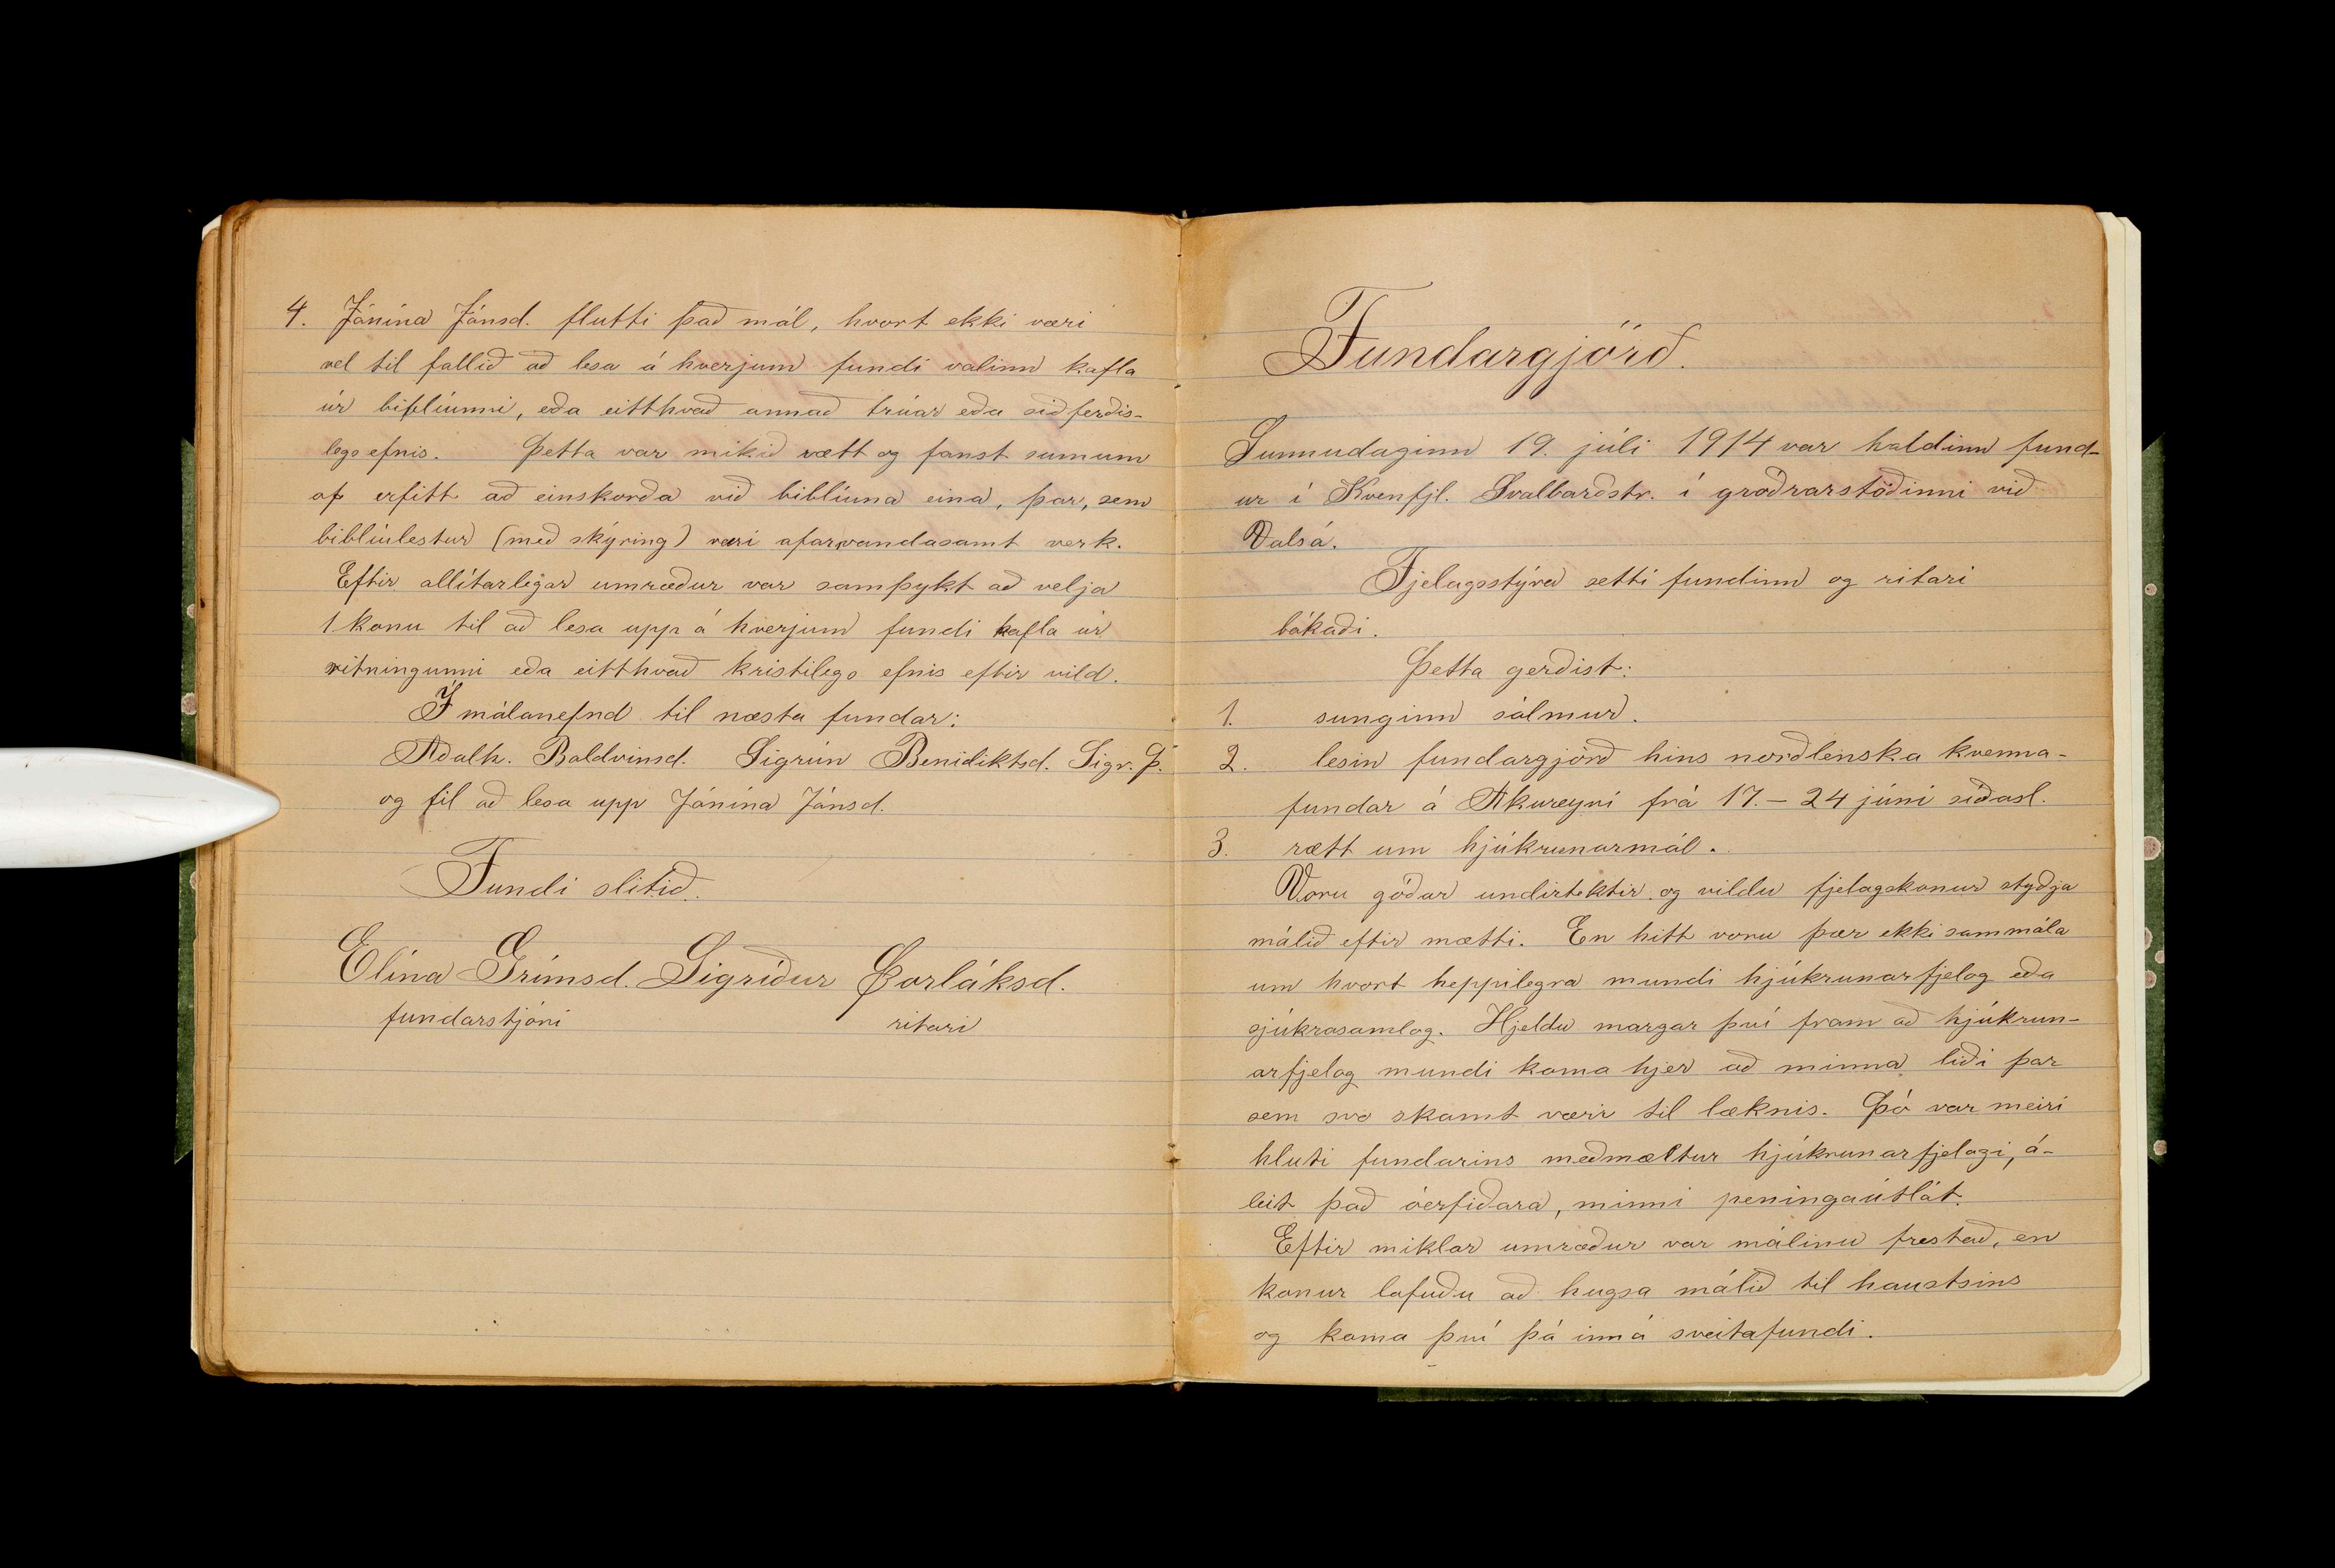 4. Jónína Jónsd. flutti það mál, hvort ekki væri
vel til fallið að lesa á hverjum fundi valinn kafla
úr biblíunni, eða eitthvað annað trúar eða siðferðis-
legs efnis. Þetta var mikið rætt og fanst sumum
of erfitt að einskorða við biblíuna eina, þar, sem
biblíulestur (með skýring) væri afarvandasamt verk.
Eftir allítarlegar umræður var samþykt að velja
1 konu til að lesa upp á hverjum fundi kafla úr
ritningunni eða eitthvað kristilegs efnis eftir vild.
Í málanefnd til næsta fundar:
Aðalh. Baldvinsd. Sigrún Benidiktsd. Sigr. Þ.
og til að lesa upp Jónína Jónsd.
Fundi slitið.
Elína Grímsd. Sigríður Þorláksd.
fundarstjóri ritari
Fundargjörð.
Sunnudaginn 19. júli 1914 var haldinn fund-
ur í Kvenfjl. Svalbarðstr. í gróðrarstöðinni við
Valsá.
Fjelagsstýra setti fundinn og ritari
bókaði.
Þetta gerðist:
1. sunginn sálmur.
2. lesin fundargjörð hins norðlenska kvenna-
fundar á Akureyri frá 17. - 24 júni síðasl.
3. rætt um hjúkrunarmál.
Voru góðar undirtektir og vildu fjelagskonur styðja
málið eftir mætti. En hitt voru þær ekki sammála
um hvort heppilegra mundi hjúkrunarfjelag eða
sjúkrasamlag. Hjeldu margar því fram að hjúkrun-
arfjelag mundi koma hjer að minna liði þar
sem svo skamt værir til læknis. Þó var meiri
hluti fundarins meðmæltur hjúkrunarfjelagi, á-
leit það óerfiðara, minni peningaútlát.
Eftir miklar umræður var málinu frestað, en
konur lofuðu að hugsa málið til haustsins
og koma því þá inn á sveitafundi.